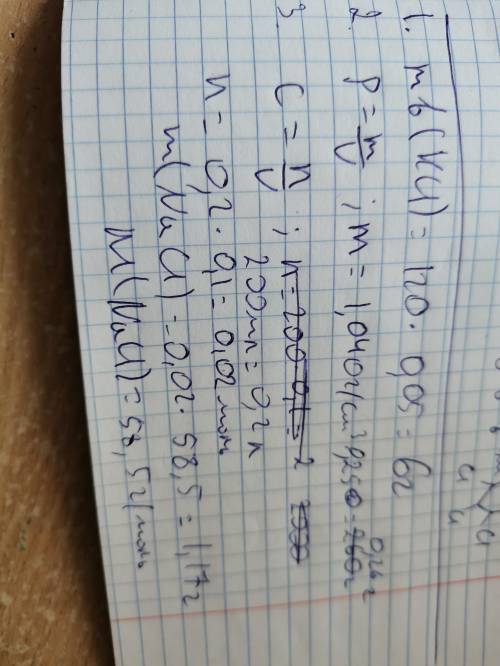 1. mв(KCl) = 120 · 0,05 = 6г
2. ρ = m/V ; m = 1,040г/см³ · 0,250 = 260г 0,26 г
3. C = n/V ; n = 200 · 0,1 = 2
200мл = 0,2 л
n = 0,2 · 0,1 = 0,02 моль
m(NaCl) = 0,02 · 58,5 = 1,17г
M(NaCl) = 58,5 г/моль
Cl
Cl